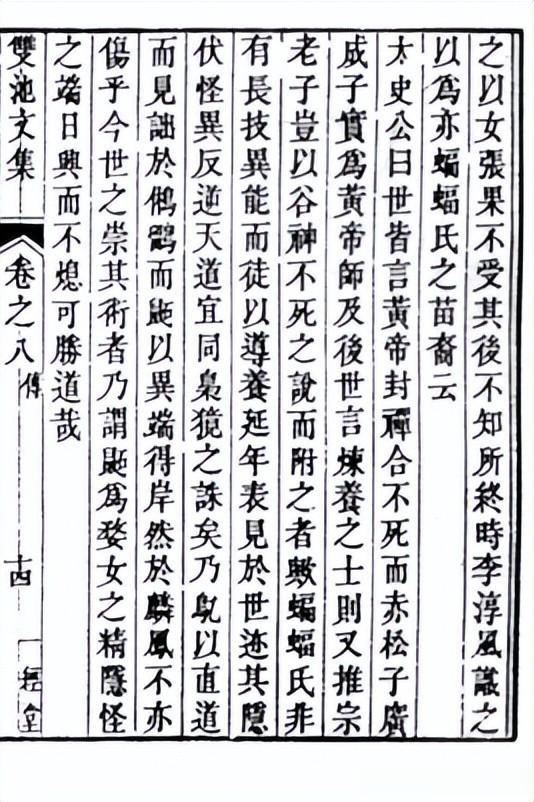 之以女張果不受其後不知所終時李淳風識之
以爲亦蝙蝠氏之苗裔云
太史公曰世皆言黃帝封禪合不死而赤松子廣
成子實爲黃帝師及後世言煉養之士則又推宗
老子豈以谷神不死之說而附之者歟蝙蝠氏非
有長技異能而徒以導養延年表見於世迹其隱
伏怪異反逆天道宜同梟獍之誅矣乃以直道
而見詘於鵂鶹而以異端得岸然於麟鳳不亦
傷乎今世之崇其術者乃謂爲婺女之精隱怪
之端日興而不熄可勝道哉
雙池文集
卷之八
傳
十四
一經堂